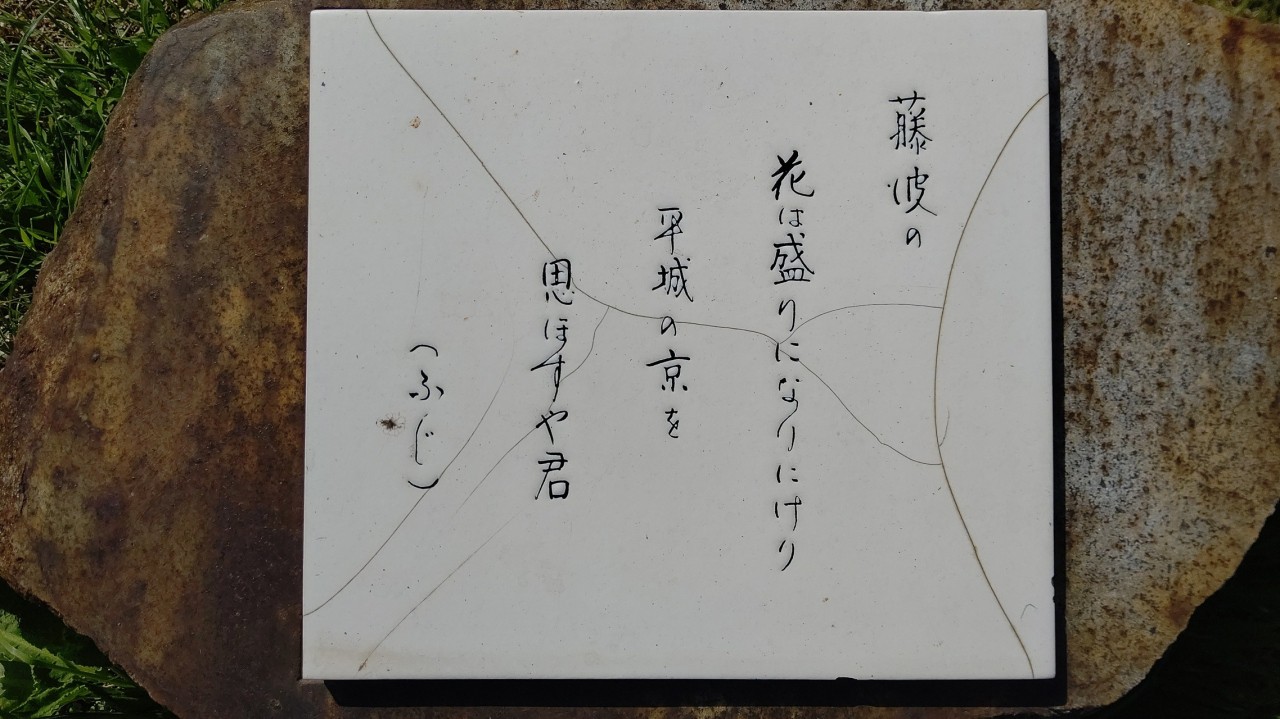 藤波の
花は盛りになりにけり
平城の京を
思ほすや君
（ふじ）